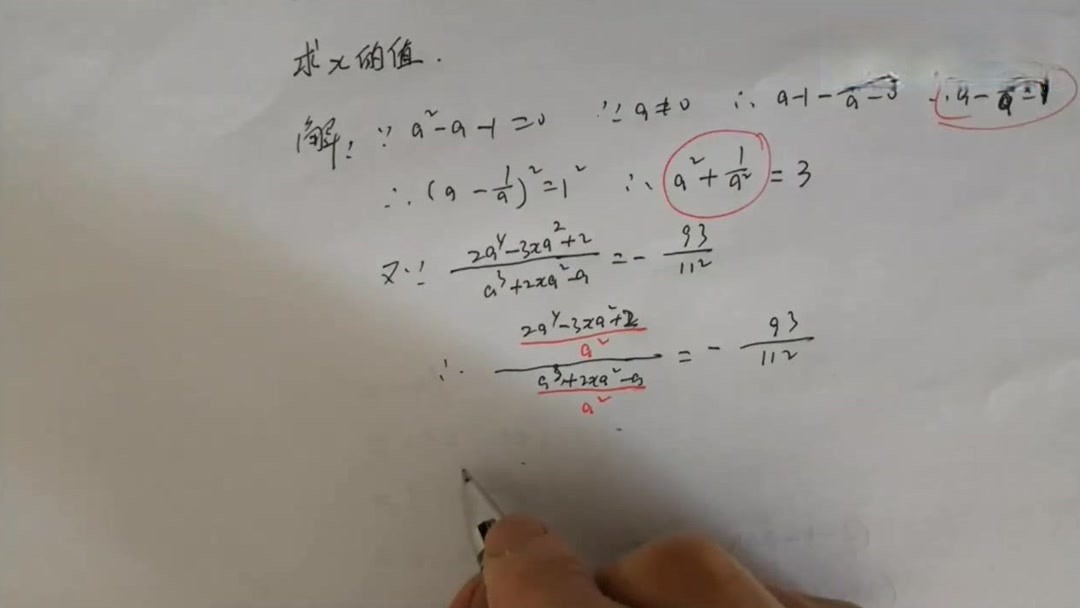 求x的值.
解: ∵ a²-a-1=0 ∵ a≠0 ∴ a-1-
∴ (a - 1/a)² = 1² ∴ a² + 1/a² = 3
又∵ (2a⁴-3xa²+2)/(a³+2xa²-a) = - 93/112
∴ ((2a⁴-3xa²+2)/a²)/((a³+2xa²-a)/a²) = - 93/112